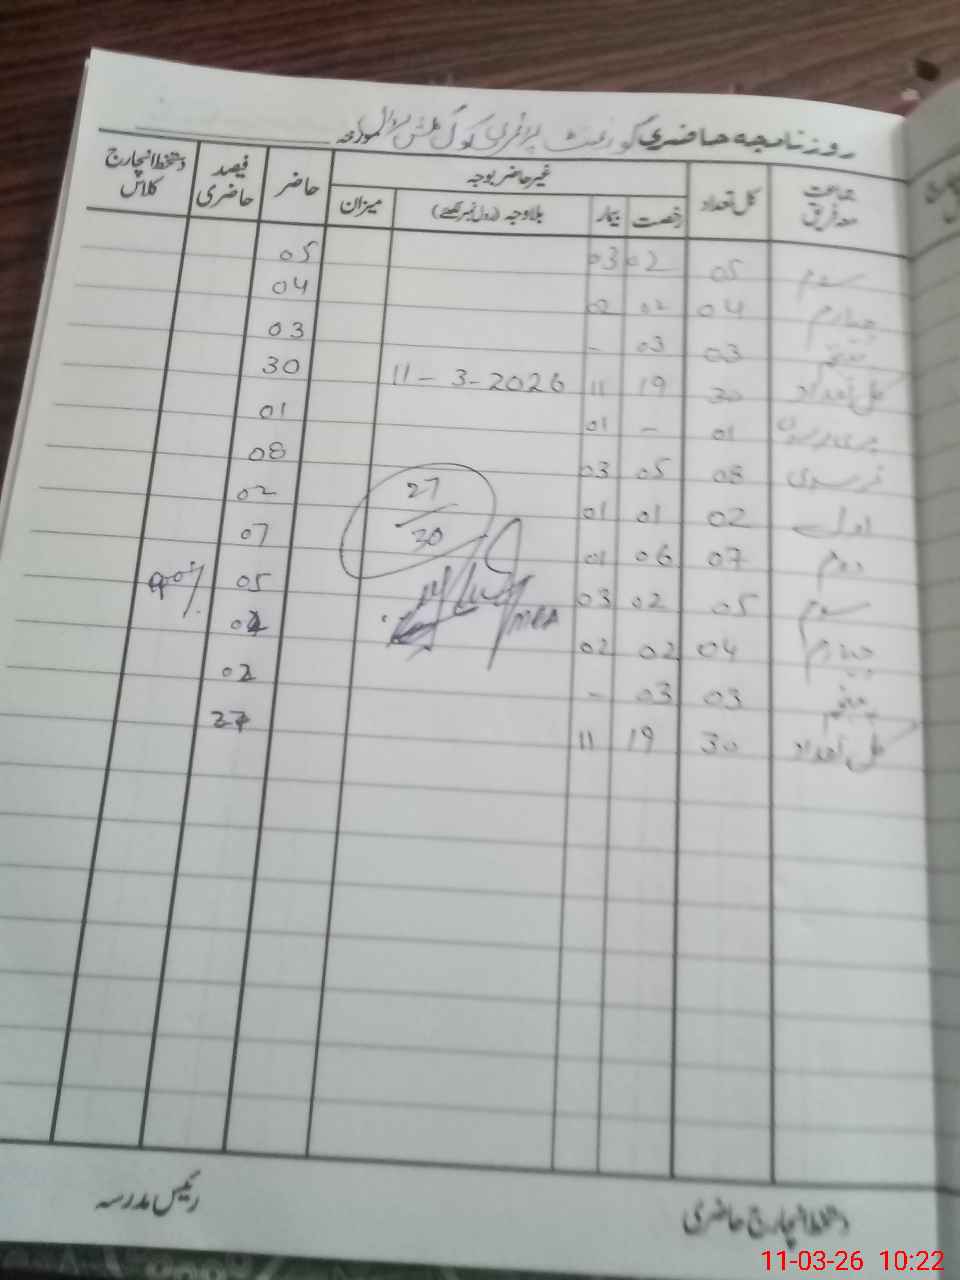 روزنامچہ حاضری گورنمنٹ پرائمری سکول مورخہ
جماعت معہ فریق کل تعداد غیر حاضر بوجہ حاضر فیصد حاضری دستخط انچارج کلاس
رخصت بیمار بلاوجہ (رول نمبر لکھیے) میزان
سوم 05 02 03 05
چہارم 04 02 02 04
پنجم 03 03 - 03
کل تعداد 30 19 11 11-3-2026 30
01 - 01 01
08 05 03 08
اول 02 01 01 02
دوم 07 06 01 07
سوم 05 02 03 05
چہارم 04 02 02
پنجم 03 03 - 02
کل تعداد 30 19 11 27
27
30
MEA
90%
دستخط انچارج حاضری رئیس مدرسہ
11-03-26 10:22